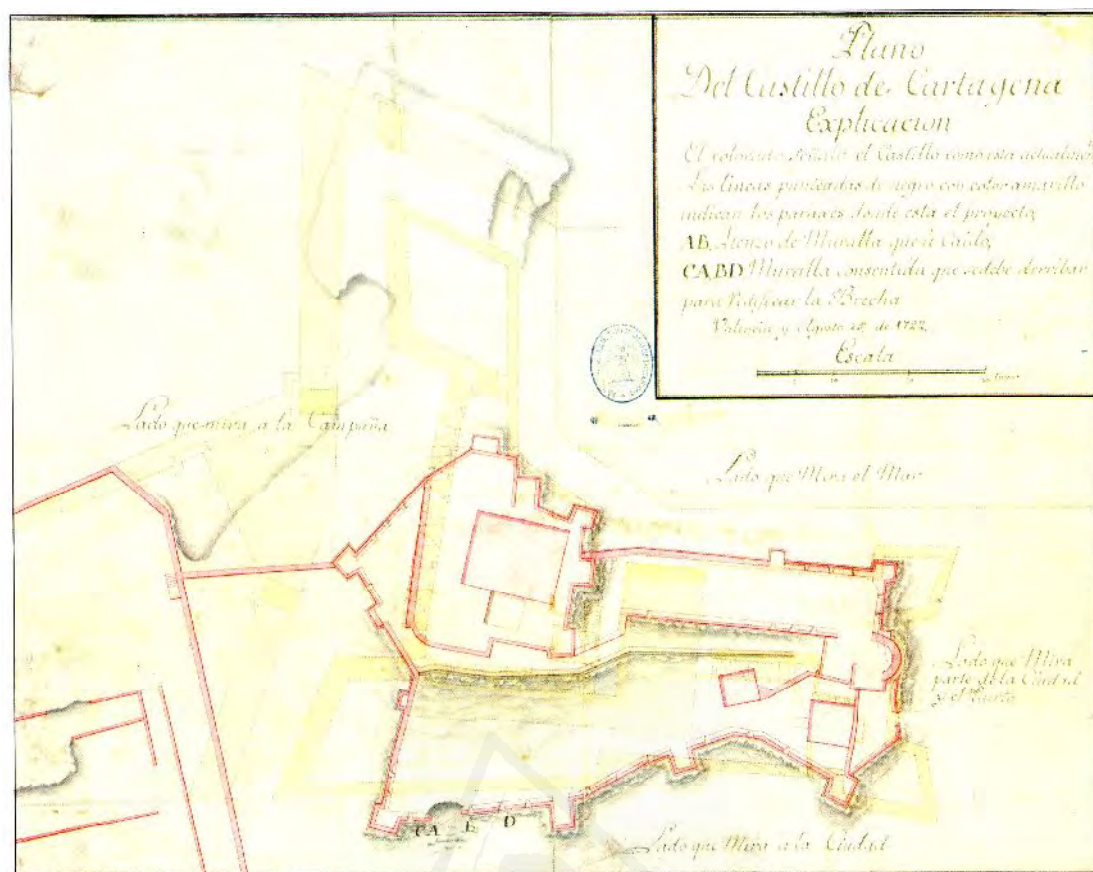 Plano
Del Castillo de Cartagena
Explicacion
El colorado señala el Castillo como esta actualmte
Las lineas punteadas de negro con color amarillo
indican los parajes donde esta el proyecto,
AB, Lienzo de Muralla que à Caido,
CABD Muralla consentida que se debe derribar
para Redificar la Brecha
Valencia y Agosto 28, de 1722
Escala
Lado que mira a la Campaña
Lado que Mira el Mar
Lado que Mira
parte de la Ciudad
y el Puerto
CA B D
Lado que Mira a la Ciudad